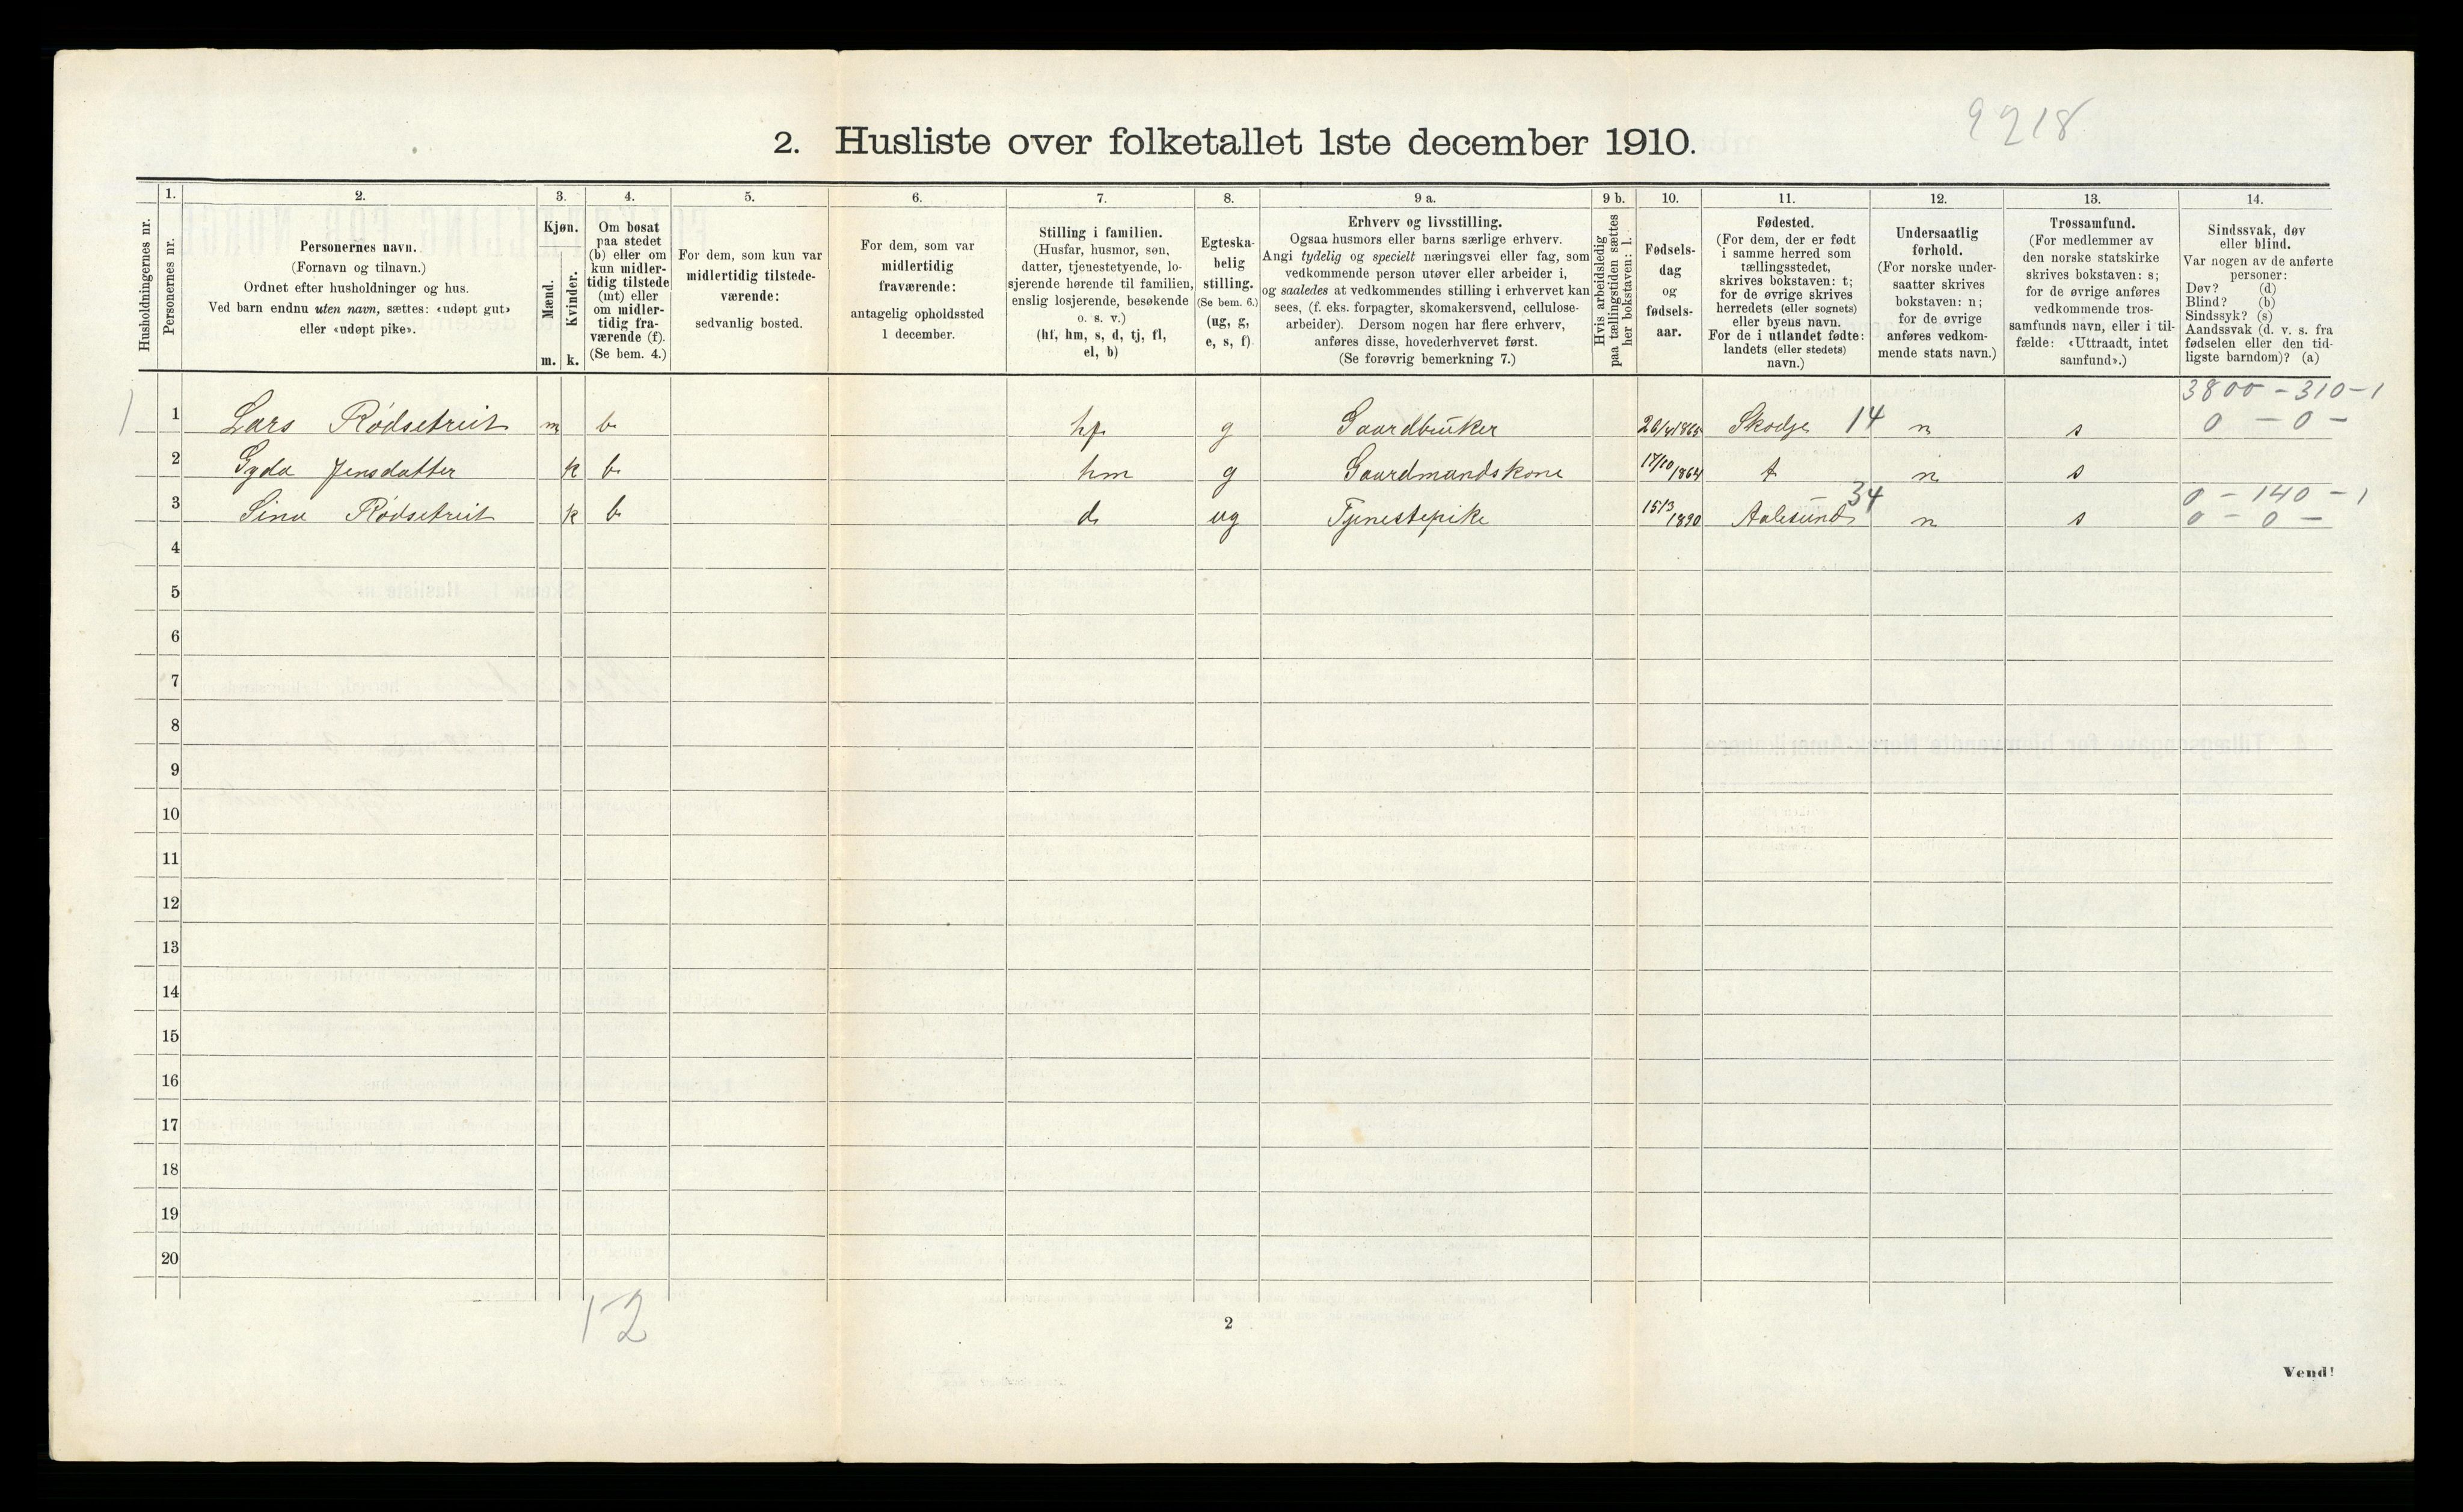 9218
2. Husliste over folketallet 1ste december 1910.
Husholdningernes nr.
1.
Personernes nr.
2.
Personernes navn.
(Fornavn og tilnavn.)
Ordnet efter husholdninger og hus.
Ved barn endnu uten navn, sættes: «udøpt gut»
eller «udøpt pike».
3.
Kjøn.
Mænd.
m.
Kvinder.
k.
4.
Om bosat
paa stedet
(b) eller om
kun midler-
tidig tilstede
(mt) eller
om midler-
tidig fra-
værende (f).
(Se bem. 4.)
5.
For dem, som kun var
midlertidig tilstede-
værende:
sedvanlig bosted.
6.
For dem, som var
midlertidig
fraværende:
antagelig opholdssted
1 december.
7.
Stilling i familien.
(Husfar, husmor, søn,
datter, tjenestetyende, lo-
sjerende hørende til familien,
enslig losjerende, besøkende
o. s. v.)
(hf, hm, s, d, tj, fl,
el, b)
8.
Egteska-
belig
stilling.
(Se bem. 6.)
(ug, g,
e, s, f)
9 a.
Erhverv og livsstilling.
Ogsaa husmors eller barns særlige erhverv.
Angi tydelig og specielt næringsvei eller fag, som
vedkommende person utøver eller arbeider i,
og saaledes at vedkommendes stilling i erhvervet kan
sees, (f. eks. forpagter, skomakersvend, cellulose-
arbeider). Dersom nogen har flere erhverv,
anføres disse, hovederhvervet først.
(Se forøvrig bemerkning 7.)
9 b.
Hvis arbeidsledig
paa tællingstiden sættes
her bokstaven: l.
10.
Fødsels-
dag
og
fødsels-
aar.
11.
Fødested.
(For dem, der er født
i samme herred som
tællingsstedet,
skrives bokstaven: t;
for de øvrige skrives
herredets (eller sognets)
eller byens navn.
For de i utlandet fødte:
landets (eller stedets)
navn.)
12.
Undersaatlig
forhold.
(For norske under-
saatter skrives
bokstaven: n;
for de øvrige
anføres vedkom-
mende stats navn.)
13.
Trossamfund.
(For medlemmer av
den norske statskirke
skrives bokstaven: s;
for de øvrige anføres
vedkommende tros-
samfunds navn, eller i til-
fælde: «Uttraadt, intet
samfund».)
14.
Sindssvak, døv
eller blind.
Var nogen av de anførte
personer:
Døv? (d)
Blind? (b)
Sindssyk? (s)
Aandssvak (d. v. s. fra
fødselen eller den tid-
ligste barndom)? (a)
3800 - 310 - 1
1 1 Lars Rødsetreit m b hf g Gaardbruker 20/4 1865 Skodje 14 n s 0 - 0 -
2 Gyda Jensdatter k b hm g Gaardmandskone 17/10 1864 t n s
0 - 140 - 1
3 Sina Rødsetreit k b d ug Tjenestepike 15/3 1890 Aalesund 34 n s 0 - 0 -
4
5
6
7
8
9
10
11
12
13
14
15
16
17
18
19
20
1-2
2
Vend!